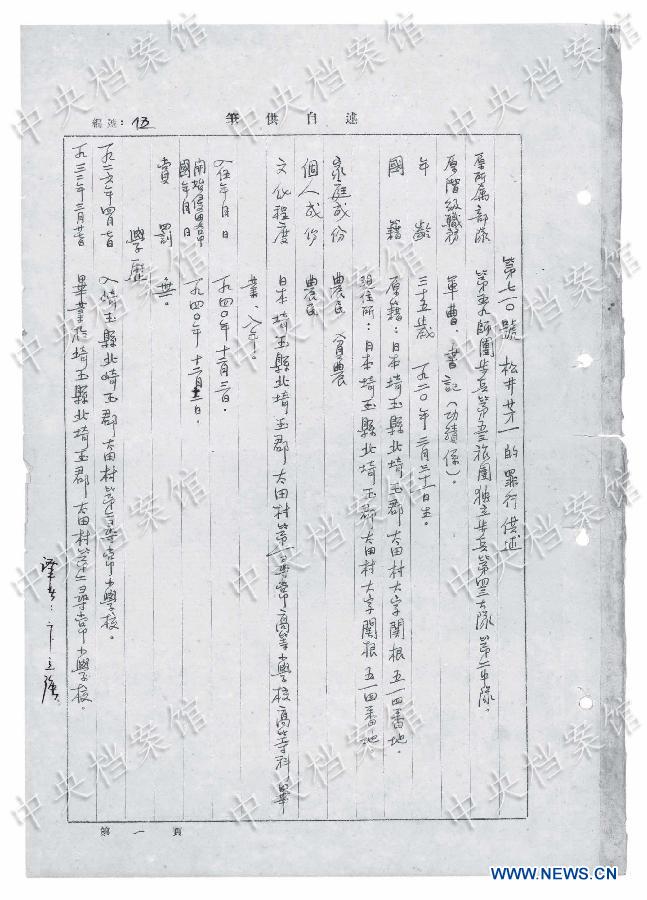 編號：13
筆供自述
第七一〇號 松井芽一的罪行供述
原所属部隊 第五九師團步兵第五三旅團独立步兵第四三大隊 第二中隊。
原階級職務 軍曹、書記（功績係）。
年齡 三十五歲 一九二〇年三月三十一日生。
國籍 原籍：日本埼玉縣北埼玉郡太田村大字関根五一四番地。
現住所：日本埼玉縣北埼玉郡太田村大字関根五一四番地
家庭成份 農民 貧農
個人成份 農民
文化程度 日本埼玉縣北埼玉郡太田村第二尋常高等小學校高等科畢
業、八年。
入伍年月日 一九四〇年十二月三日．
開始侵畧中國年月日 一九四〇年十二月十二日．
賞罰 無。
學歷
一九二六年四月一日 入埼玉縣北埼玉郡太田村第二尋常小學校。
一九三二年三月廿七日 畢業於埼玉縣北埼玉郡太田村第二尋常小學校。
譯者：卞立強
第一頁
中央档案馆
WWW.NEWS.CN